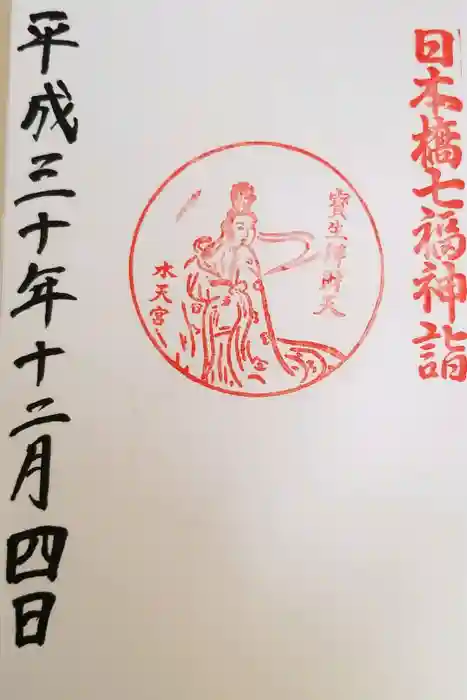 日本橋七福神詣
寳生辨財天
水天宮
平成三十年十二月四日